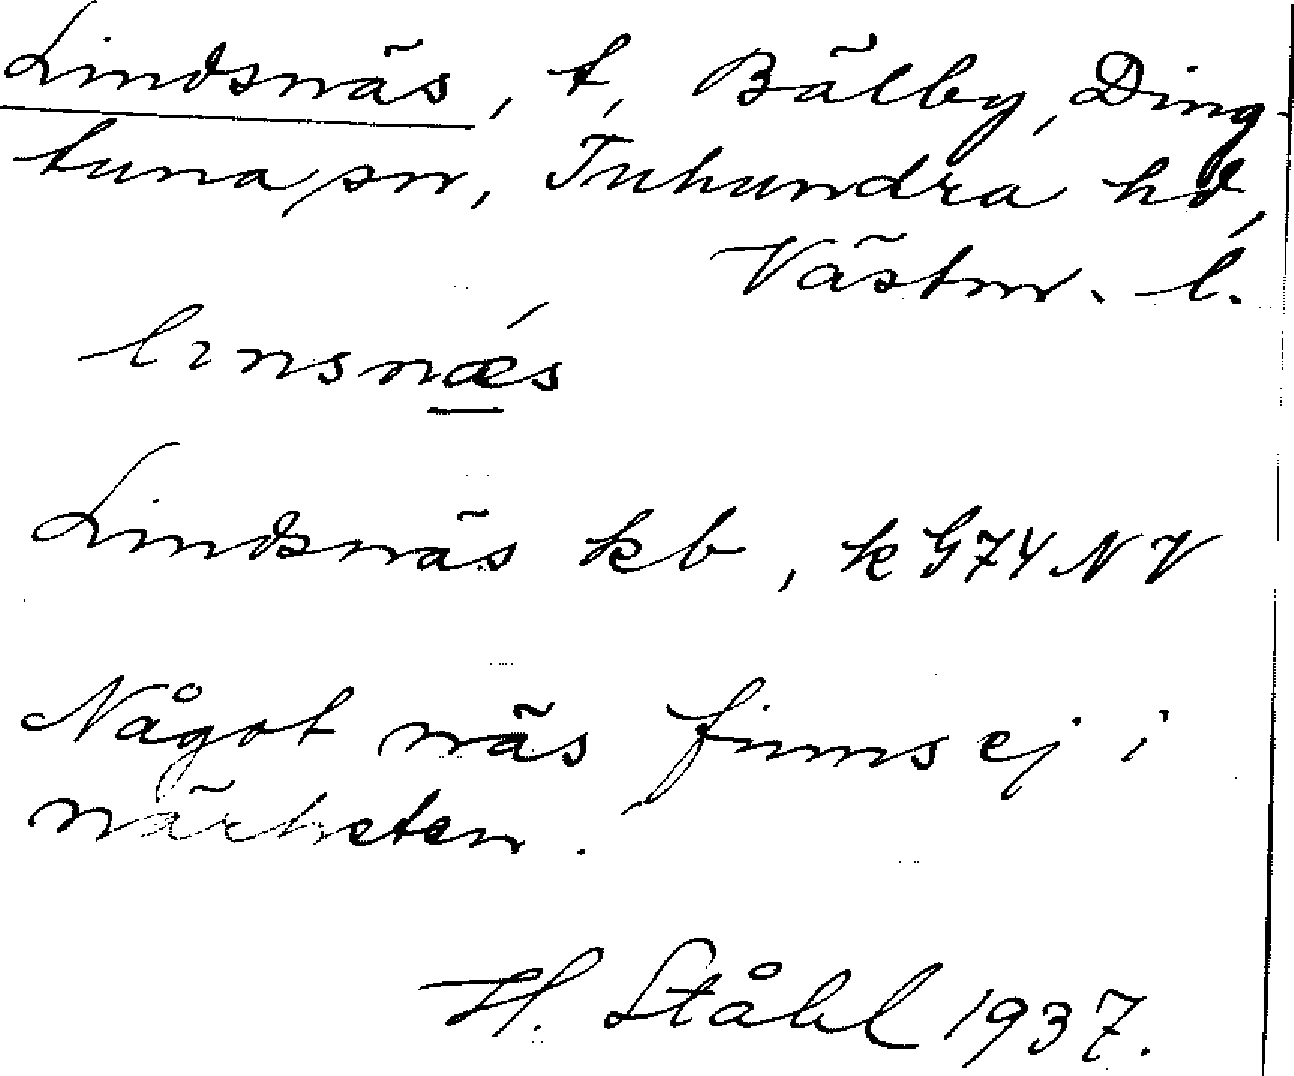 Lindsnäs, t, Bälby, Ding-
tuna sn, Tuhundra hd,
Västm. l.
linsnǽs
Lindsnäs kb, k G74 NV
Något näs finns ej i
närheten.
H. Ståhl 1937.